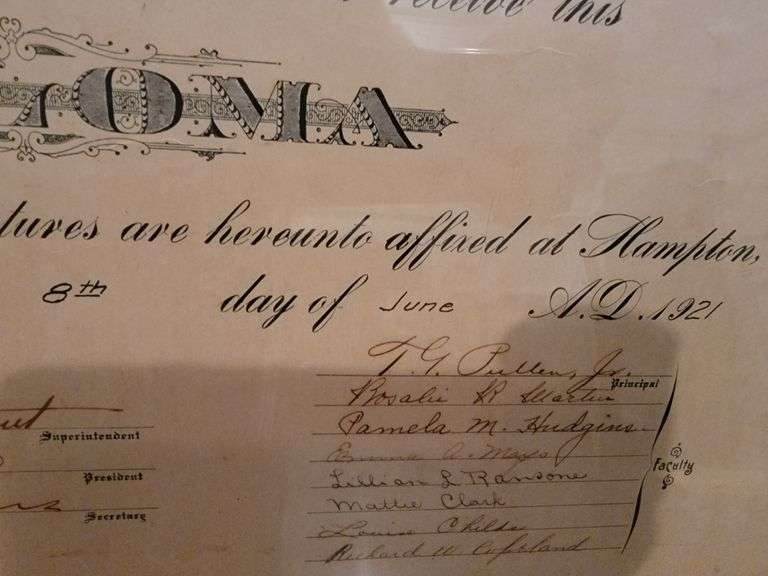 receive this
LOMA
tures are hereunto affixed at Hampton,
8th day of June A.D. 1921
T. G. Pullen, Jr.
Principal
Rosalie R Martin
Pamela M. Hudgins
Superintendent
Emma A. Mays
President
Lillian L Ransone
Faculty
Mattie Clark
Secretary
Louise Childs
Richard W. Copeland